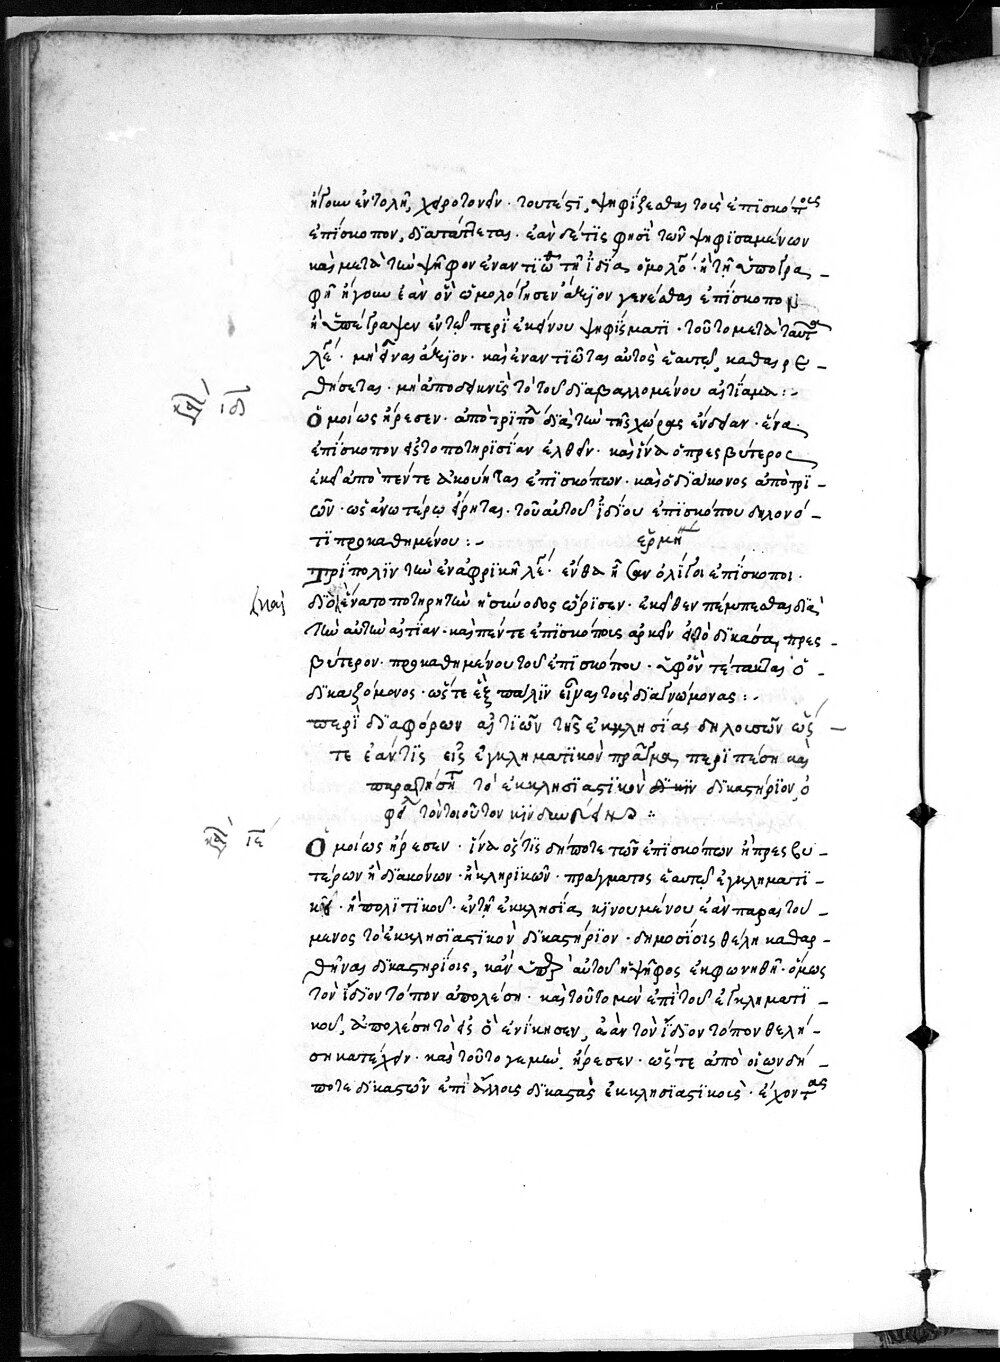 ἤγουν ἐντολῆ, χειροτονεῖν · τουτέστι, ψηφίζεσθαι τοῖς ἐπισκόποις
ἐπίσκοπον, διατάττεται · ἐὰν δέ τις φησὶ τῶν ψηφισαμένων
καὶ μετὰ τὴν ψῆφον ἐναντιωθῆ τῆ ἰδία ὁμολο · ἢ τῆ ὑπογρα_
φῆ ἤγουν ἐὰν ὃν ὡμολόγησεν ἄξιον γενέσθαι ἐπίσκοπον
ἢ ὑπέγραψεν ἐν τῶ περὶ ἐκείνου ψηφίσματι · τοῦτο μετὰ ταῦτα
λέ · μὴ εἶναι ἄξιον · καὶ ἐναντιῶται αὐτὸς ἑαυτῶ, καθαιρε_
θήσεται · μὴ ἀποδεικνὺς τὸ τοῦ διαβαλλομένου αἰτίαμα :-
ιδ
Ὁμοίως ἤρεσεν · ἀπὸ τριπό διὰ τὴν τῆς χώρας ἔνδειαν · ἕνα
ἐπίσκοπον εἰς τοποτηρισίαν ἐλθεῖν · καὶ ἵνα ὁ πρεσβύτερος
ἐκεῖ ἀπὸ πέντε ἀκούηται ἐπισκόπων · καὶ ὁ διάκονος ἀπὸ τρι_
ῶν · ὡς ἀνωτέρω εἴρηται · τοῦ αὐτοῦ ἰδίου ἐπισκόπου δηλονό_
τι προκαθημένου :- ἑρμη
Τρίπολιν τὴν ἐν ἀφρικῆ λέ · ἔνθα ἦσαν ὀλίγοι ἐπίσκοποι ·
καὶ
διὸ ἕνα τοποτηρητὴν ἡ σύνοδος ὥρισεν · ἐκεῖθεν πέμπεσθαι διὰ
τὴν αὐτὴν αἰτίαν · καὶ πέντε ἐπισκόπους ἀρκεῖν εἰς τὸ δικάσαι πρεσ_
βύτερον · προκαθημένου τοῦ ἐπισκόπου · ὑφ' ὃν τέτακται ὁ_
δικαζόμενος · ὥστε ἓξ πάλιν εἶναι τοὺς διαγνώμονας :-
περὶ διαφόρων αἰτιῶν τῆς ἐκκλησίας δηλοποιῶν ὥσ_
τε ἐάν τις εἰς ἐγκληματικὸν πρᾶγμα περιπέση καὶ
παραιτήση τὸ ἐκκλησιαστικὸν δικαστήριον, ὀ
φεί τὸν τοιοῦτον κινδυνεύειν :
ιε
Ὁμοίως ἤρεσεν · ἵνα ὅστις δήποτε τῶν ἐπισκόπων ἢ πρεσβυ_
τέρων ἢ διακόνων · ἢ κληρικῶν · πράγματος ἑαυτῶ ἐγκληματι_
κοῦ · ἢ πολιτικοῦ · ἐν τῆ ἐκκλησία κινουμένου ἐὰν παραιτού_
μενος τὸ ἐκκλησιαστικὸν δικαστήριον · δημοσίοις θέλη καθαρ_
θῆναι δικαστηρίοις, κἂν ὑπὲρ αὐτοῦ ἡ ψῆφος ἐκφωνηθῆ · ὅμως
τὸν ἴδιον τόπον ἀπολέση · καὶ τοῦτο μὲν ἐπὶ τοῦ ἐγκληματι_
κοῦ, ἀπολέση τὸ εἰς ὃ ἐνίκησεν, ἐὰν τὸν ἴδιον τόπον θελή_
ση κατέχειν · καὶ τοῦτο γε μὴν ἤρεσεν · ὥστε ἀπὸ οἱωνδή_
ποτε δικαστῶν ἐπὶ ἄλλους δικαστὰς ἐκκλησιαστικοὺς · ἔχοντας